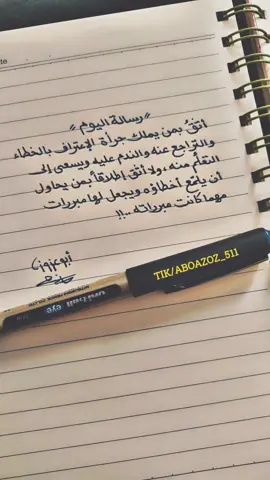 «رسالة اليوم»
أثقُ بمن يملك جرأة الإعتراف بالخطاء
والتراجع عنه والندم عليه ويسعى إلى
ولا أثق إطلاقاً بمن يحاول
أن يلمّع أخطاؤه ويجعل لها مبررات
مهما كانت مبرراته ..!!
أبو عزوز
TIK/ABOAZOZ_511
uni-ball eye